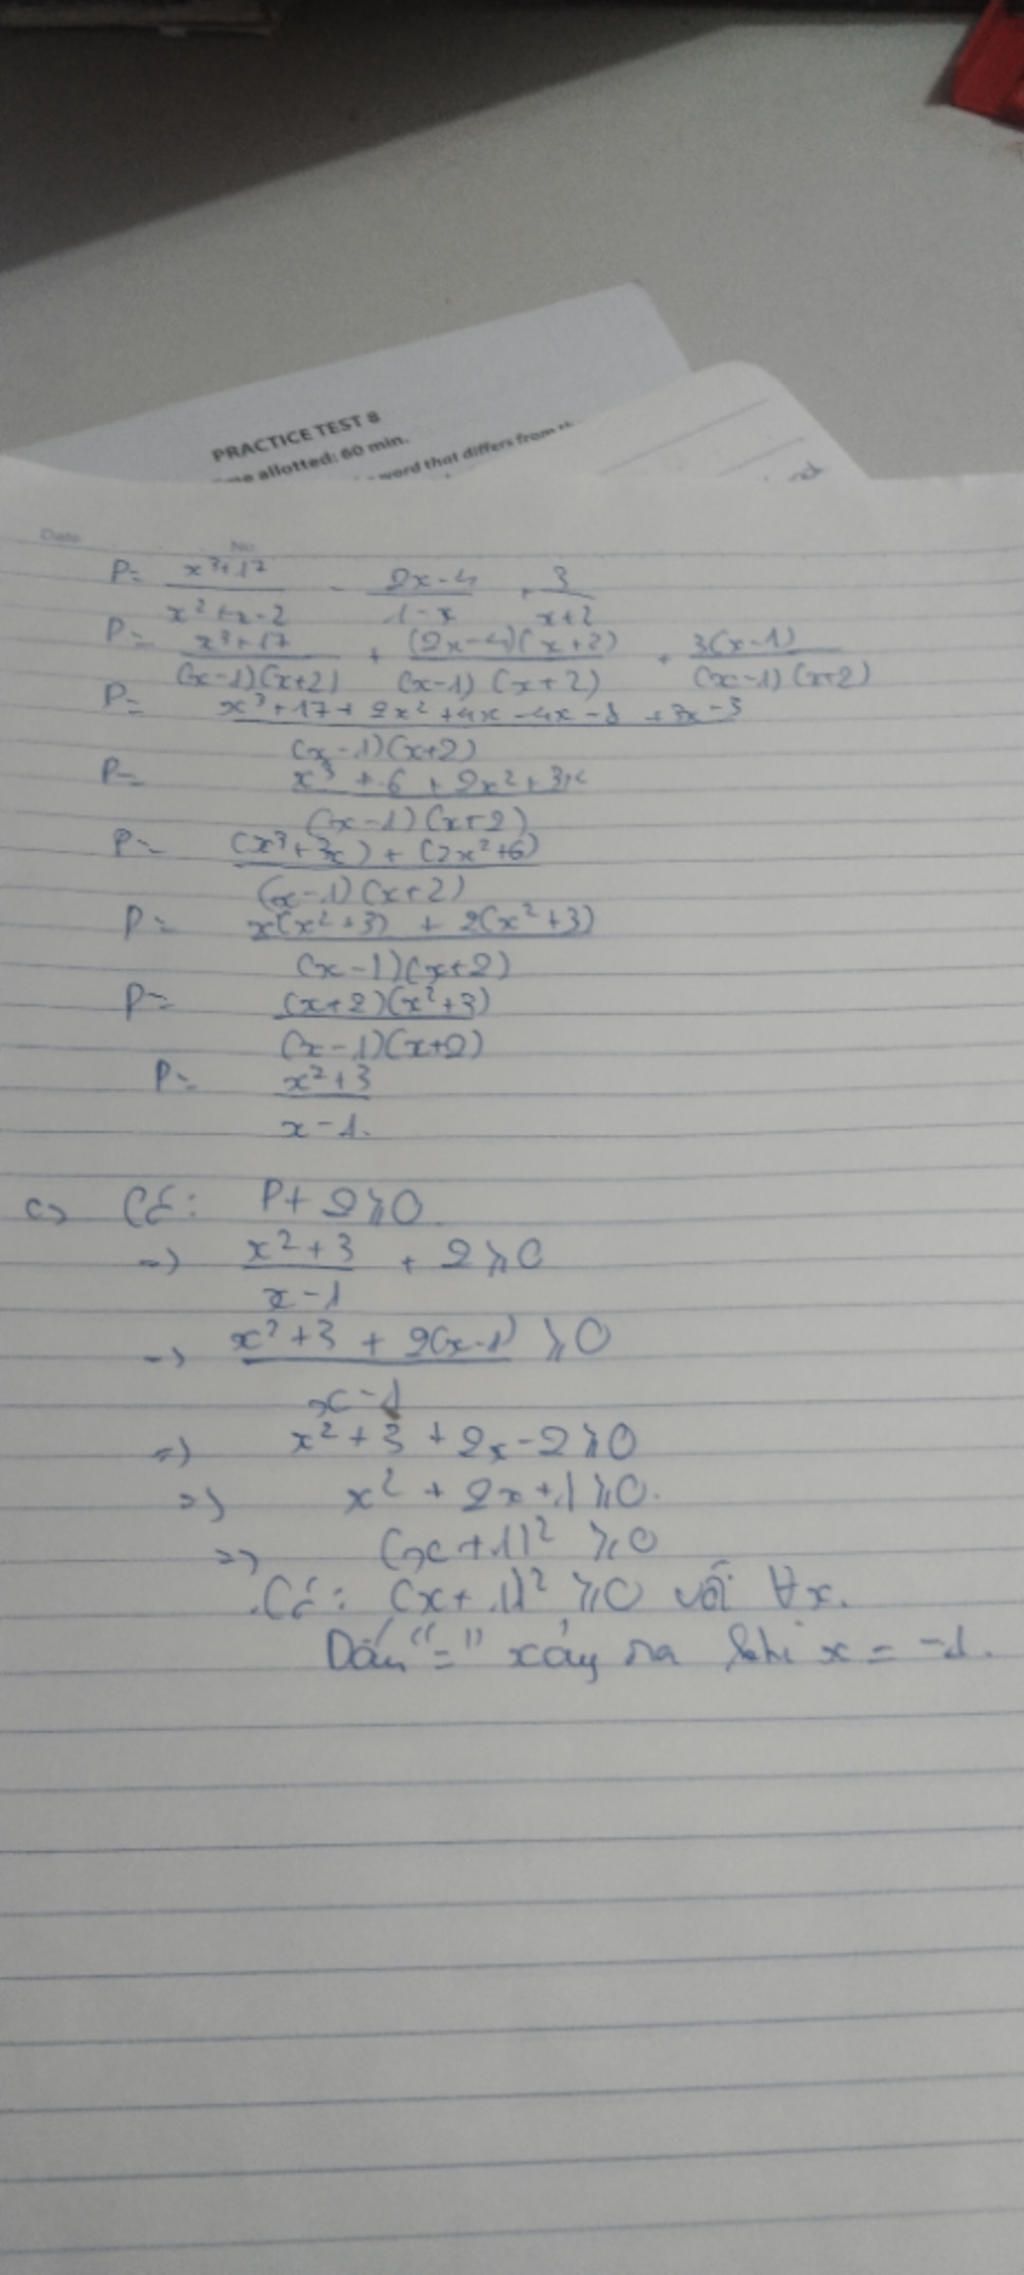 PRACTICE TEST 8
me allotted: 60 min.
word that differs from th
Date
No
P= x³+17 / x²+x-2 - 2x-4 / 1-x + 3 / x+2
P= x³+17 / (x-1)(x+2) + (2x-4)(x+2) / (x-1)(x+2) + 3(x-1) / (x-1)(x+2)
P= x³+17+2x²+4x-4x-8+3x-3 / (x-1)(x+2)
P= x³+6+2x²+3x / (x-1)(x+2)
P= (x³+3x)+(2x²+6) / (x-1)(x+2)
P= x(x²+3)+2(x²+3) / (x-1)(x+2)
P= (x+2)(x²+3) / (x-1)(x+2)
P= x²+3 / x-1.
c) Có: P+2⩾0
=> x²+3 / x-1 + 2⩾0
=> x²+3+2(x-1) / x-1 ⩾0
=> x²+3+2x-2⩾0
=> x²+2x+1⩾0.
=> (x+1)²⩾0
Có: (x+1)²⩾0 với ∀x.
Dấu "=" xảy ra khi x=-1.